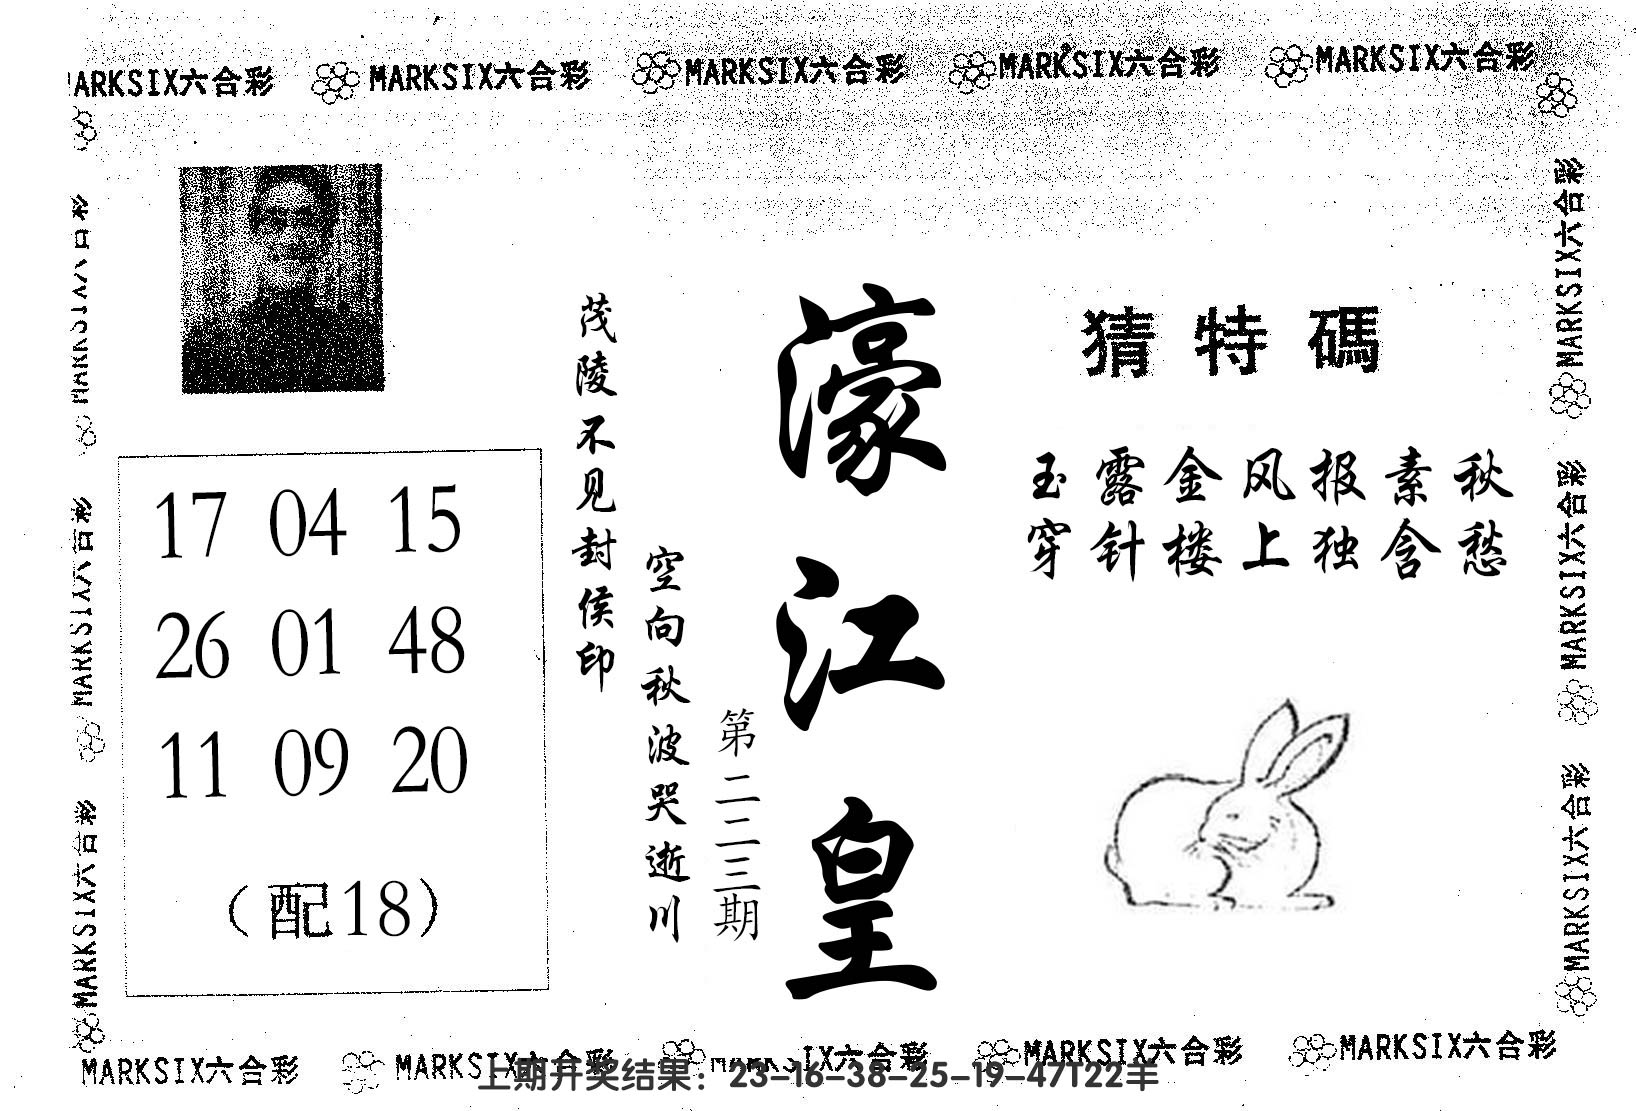 MARKSIX六合彩 MARKSIX六合彩 MARKSIX六合彩 MARKSIX六合彩 MARKSIX六合彩
猜特碼
玉露金风报素秋
穿针楼上独含愁
濠江皇
第二二三期
茂陵不见封侯印
空向秋波哭逝川
17 04 15
26 01 48
11 09 20
（配18）
MARKSIX六合彩
MARKSIX六合彩
MARKSIX六合彩
MARKSIX六合彩
MARKSIX六合彩
MARKSIX六合彩
MARKSIX六合彩 MARKSIX六合彩 MARKSIX六合彩 MARKSIX六合彩 MARKSIX六合彩
上期开奖结果：23-16-38-25-19-47T22羊